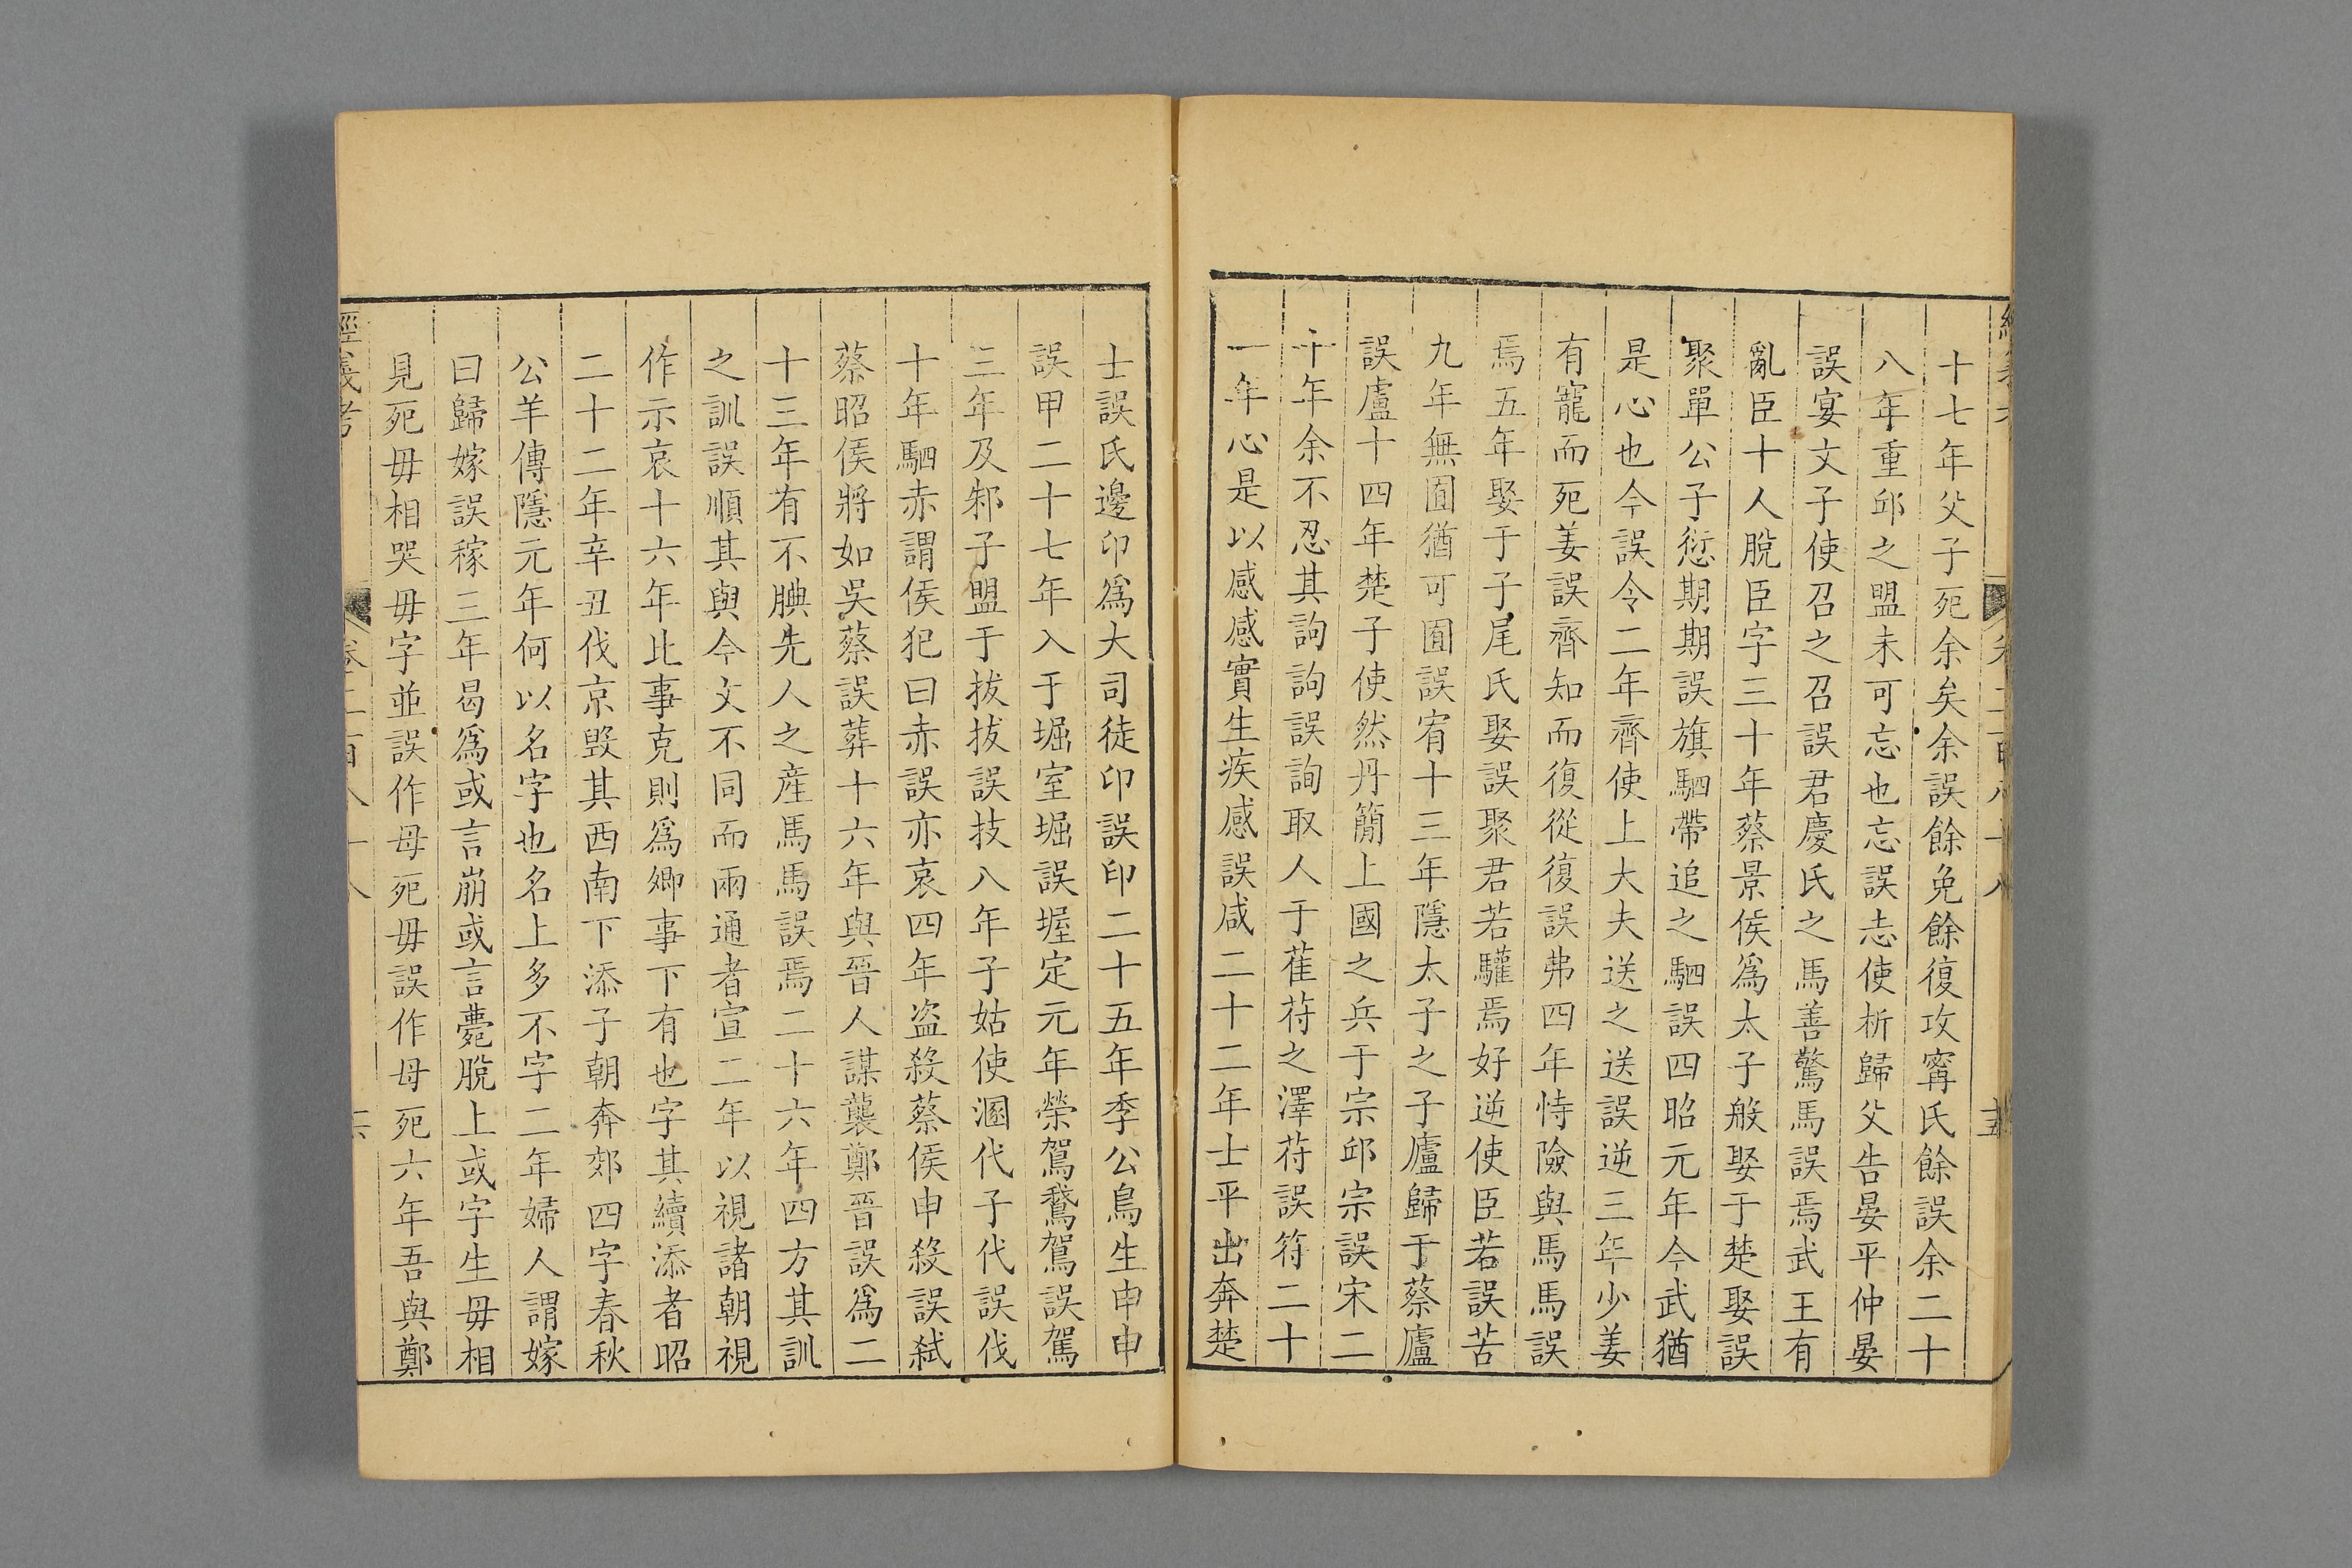 十七年父子死余矣余誤餘免餘復攻甯氏餘誤余二十
八年重邱之盟未可忘也忘誤志使析歸父告晏平仲晏
誤宴文子使召之召誤君慶氏之馬善驚馬誤焉武王有
亂臣十人脫臣字三十年蔡景侯爲太子般娶于楚娶誤
聚單公子愆期期誤旗駟帶追之駟誤四昭元年今武猶
是心也今誤令二年齊使上大夫送之送誤逆三年少姜
有寵而死姜誤齊知而復從復誤弗四年恃險與馬馬誤
焉五年娶于子尾氏娶誤聚君若驩焉好逆使臣若誤苦
九年無囿猶可囿誤宥十三年隱太子之子廬歸于蔡廬
誤盧十四年楚子使然丹簡上國之兵于宗邱宗誤宋二
十年余不忍其訽訽誤詢取人于萑苻之澤苻誤符二十
一年心是以感感實生疾感誤咸二十二年士平出奔楚
士誤氏邊卬爲大司徒卬誤印二十五年季公鳥生申申
誤甲二十七年入于堀室堀誤握定元年榮駕鵞駕誤駕
三年及邾子盟于拔拔誤技八年子姑使溷代子代誤伐
十年駟赤謂侯犯曰赤誤亦哀四年盗殺蔡侯申殺誤弑
蔡昭侯將如吳蔡誤葬十六年與晉人謀襲鄭晉誤爲二
十三年有不腆先人之産馬馬誤焉二十六年四方其訓
之訓誤順其與今文不同而兩通者宣二年以視諸朝視
作示哀十六年比事克則爲卿事下有也字其續添者昭
二十二年辛丑伐京毁其西南下添子朝奔郊四字春秋
公羊傳隱元年何以名字也名上多不字二年婦人謂嫁
曰歸嫁誤稼三年曷爲或言崩或言薨脫上或字生毋相
見死毋相哭毋字並誤作母死毋誤作母死六年吾與鄭
經義考
卷二百八十八